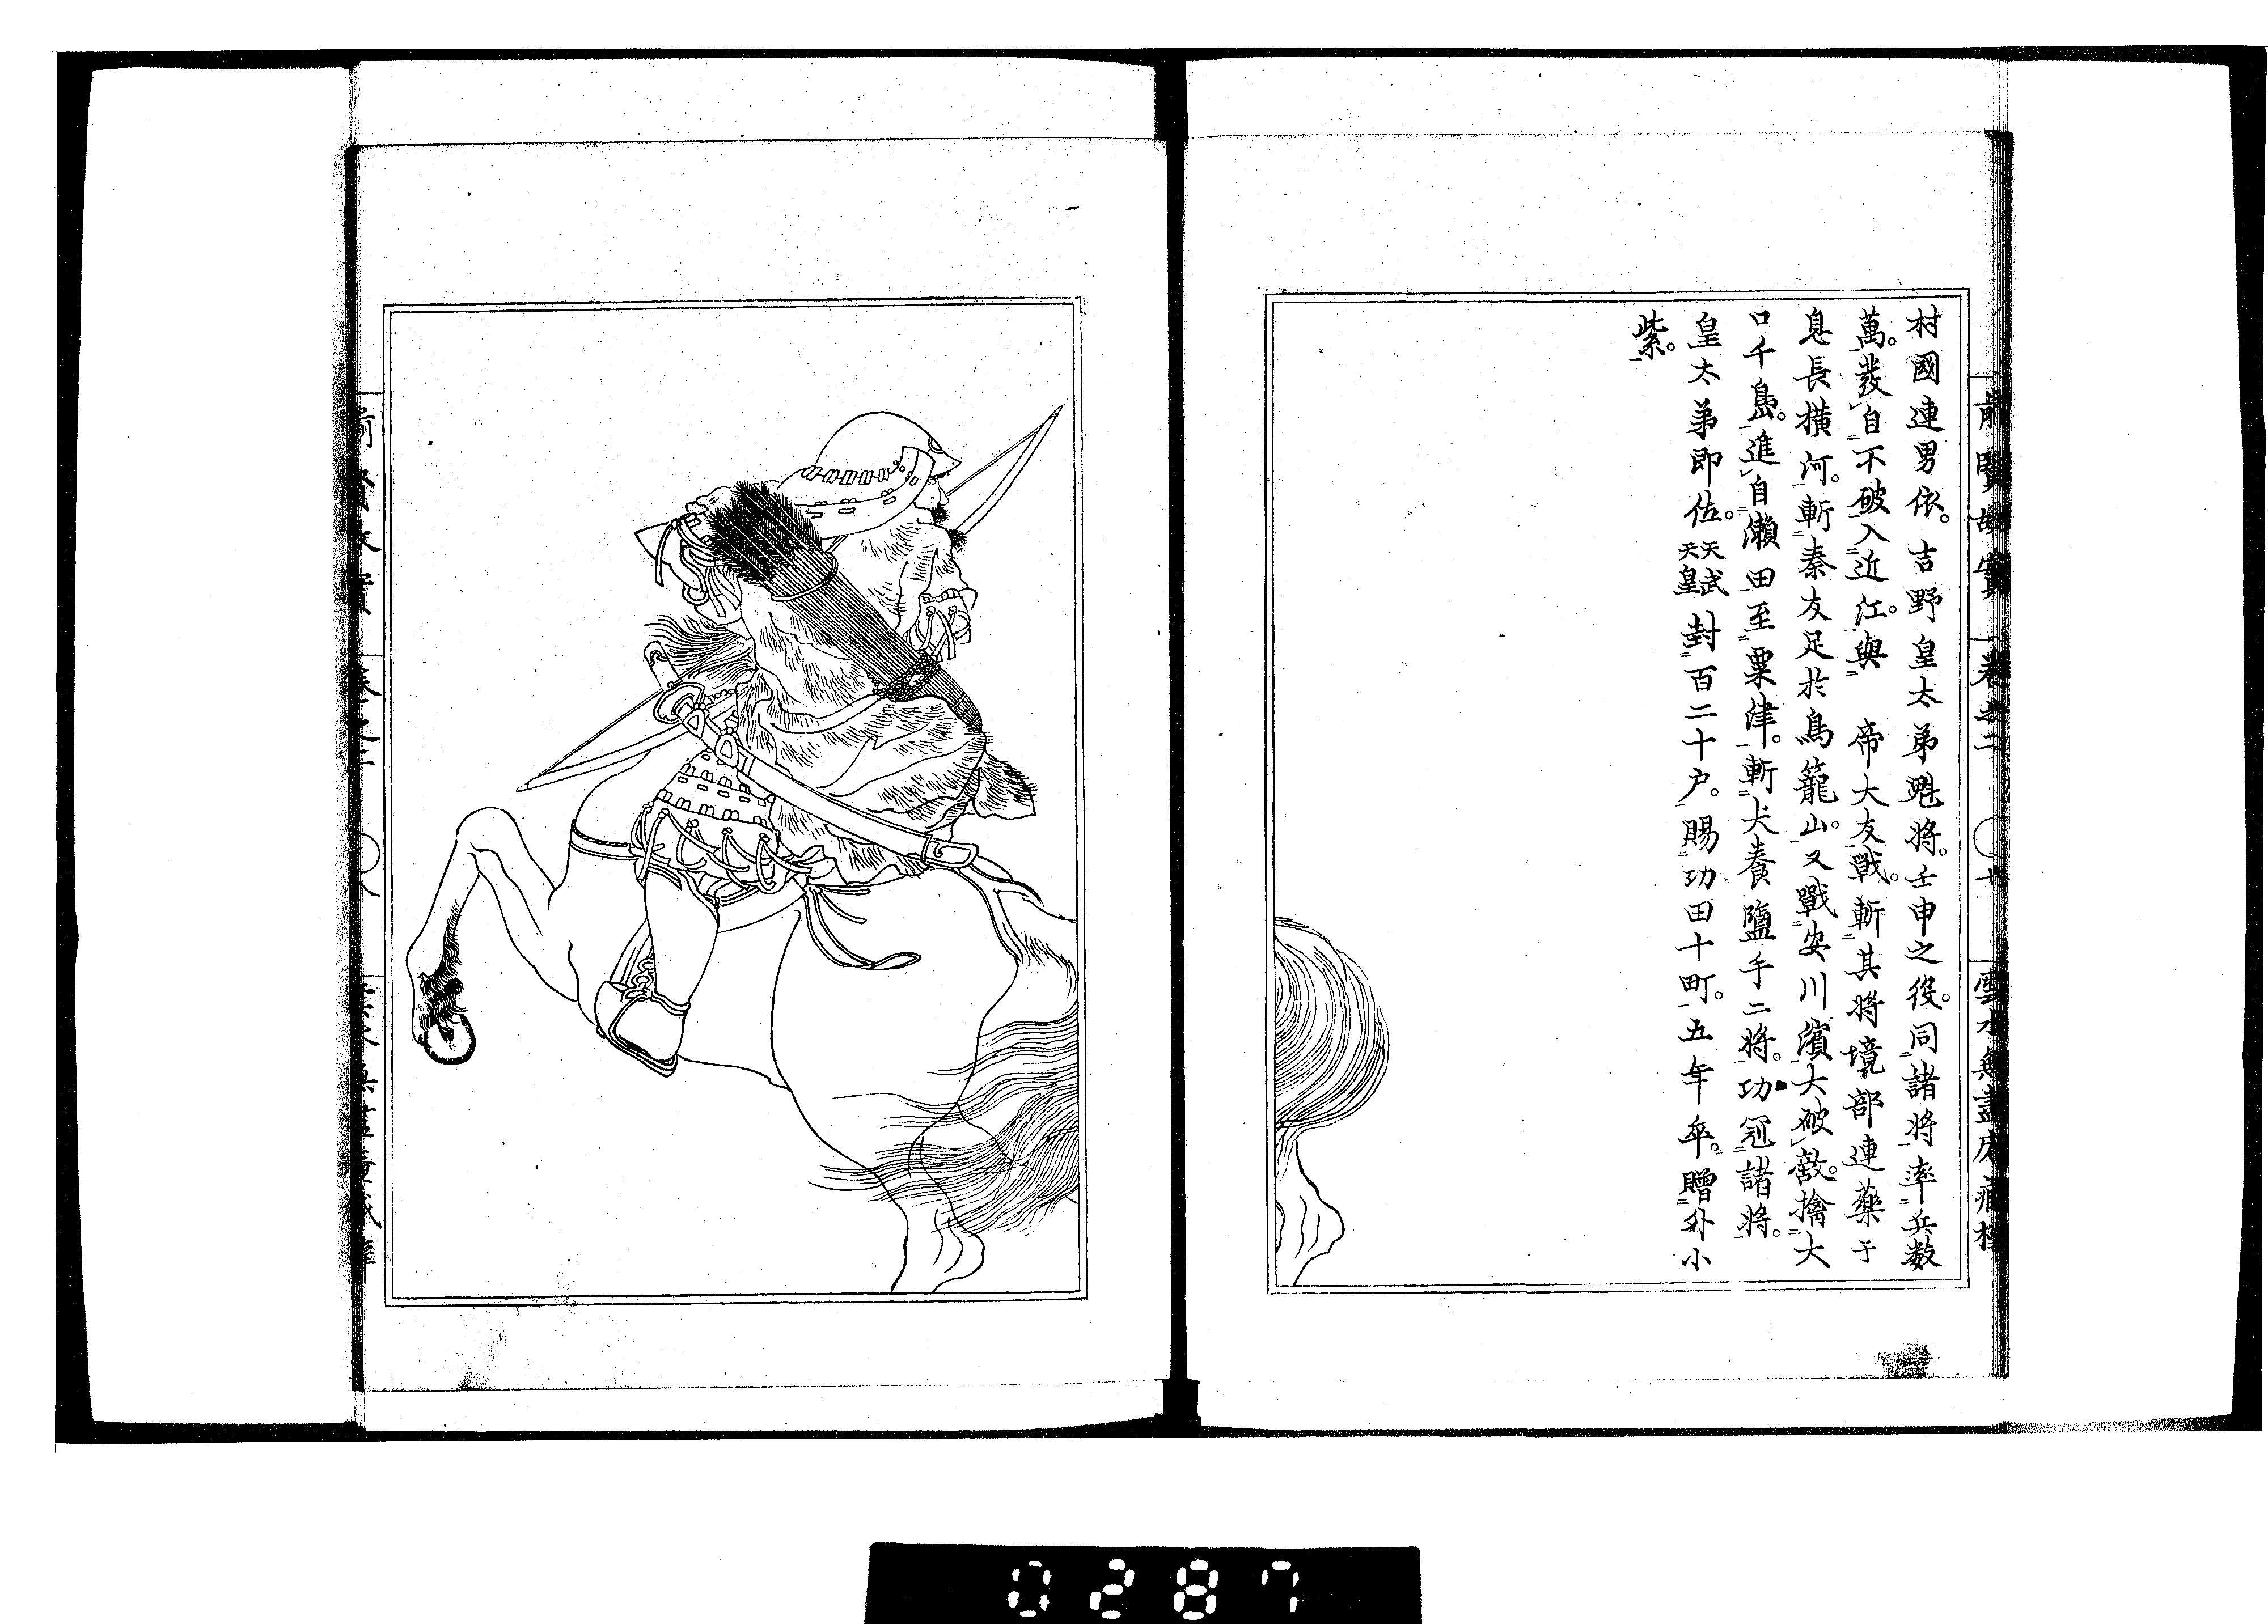 前賢故實 卷之二 〇 十 雲水無盡庵藏
村國連男依。吉野皇太弟魁將。壬申之役。同諸將率兵数
萬。發自不破入近江。與 帝大友戰。斬其將境部連藥于
息長横河。斬秦友足於鳥籠山。又戰安川濱大破敵。擒大
口千島。進自瀨田至粟津。斬犬養鹽手二將。功冠諸將。
皇太弟即位。天武天皇封百二十户。賜功田十町。五年卒。贈外小
紫。
0287